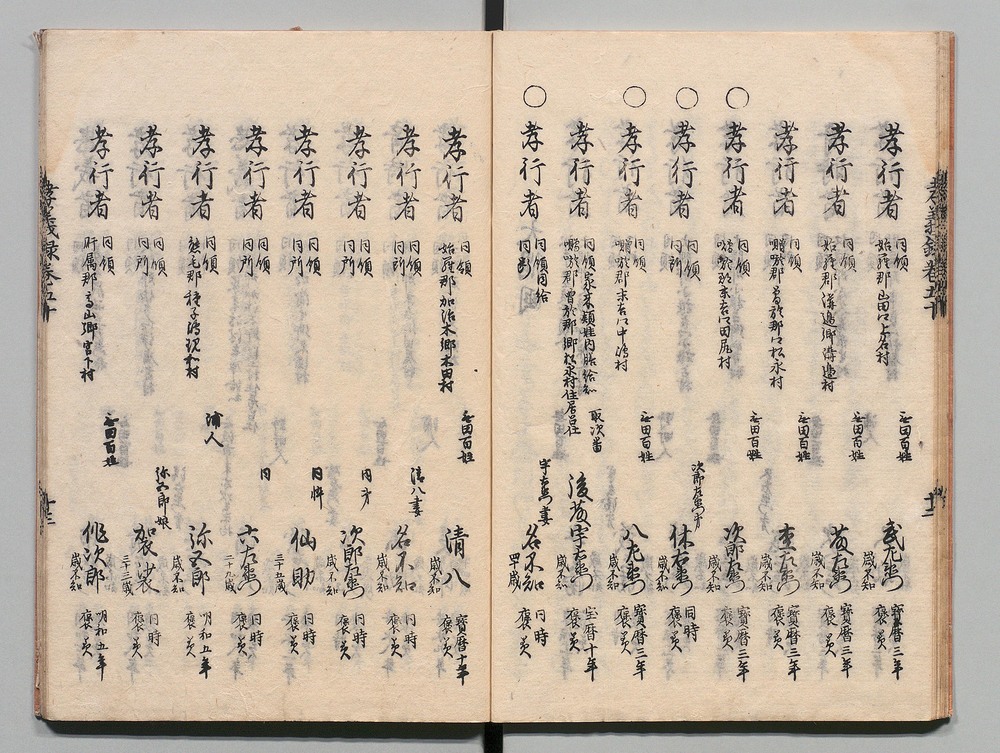 孝行者 同領 姶羅郡山田口上名村 無田百姓 武左衛門 歳不知 寶暦三年 褒美
孝行者 同領 姶羅郡溝邉郷溝邉村 無田百姓 歳不知 寶暦三年 褒美
孝行者 同領 囎唹郡曽於郡口松永村 無田百姓 歳不知 寶暦三年 褒美
○ 孝行者 同領 囎唹郡末吉口田尻村 無田百姓 次郎左衛門 歳不知 寶暦三年 褒美
○ 孝行者 同領 同所 次郎左衛門弟 休右衛門 歳不知 同時 褒美
○ 孝行者 同領 囎唹郡末吉口中嶋村 無田百姓 八左衛門 歳不知 寶暦三年 褒美
孝行者 同領家来頴娃内膳給知 囎唹郡曽於郡郷松永村住居 取次番 後藤宇右衛門 歳不知 宝暦十年 褒美
○ 孝行者 同領同給 同所 宇右衛門妻 名不知 四十歳 同時 褒美
孝行者 同領 姶羅郡加治木郷木田村 無田百姓 清八 歳不知 寶暦十年 褒美
孝行者 同領 同所 清八妻 名不知 歳不知 同時 褒美
孝行者 同領 同所 同弟 次郎右衛門 歳不知 同時 褒美
孝行者 同領 同所 同忰 仙助 三十五歳 同時 褒美
孝行者 同領 同所 同 六右衛門 二十九歳 同時 褒美
孝行者 同領 熊毛郡種子嶋現和村 浦人 弥五郎 歳不知 明和五年 褒美
孝行者 同領 同所 弥五郎娘 袈裟 三十三歳 同時 褒美
孝行者 同領 肝属郡高山郷宮下村 無田百姓 歳不知 明和五年 褒美
孝義録巻五十